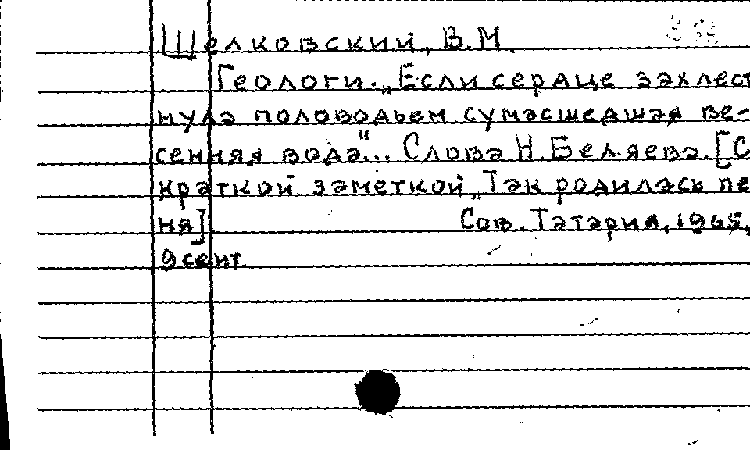 Шелковский, В.М.
Геологи. „Если сердце захлест
нула половодьем сумасшедшая ве-
сенняя вода"... Слова Н.Беляева. [С
краткой заметкой „Так родилась пе
ня]
Сов. Татария, 1965,
9 сент.